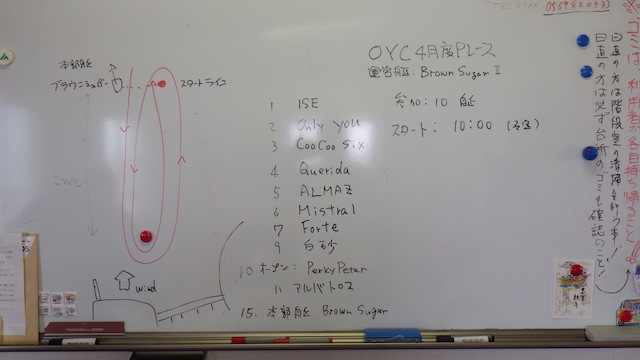 OYC 4月度Pレース
運営艇: Brown Sugar II
参加: 10 艇
スタート: 10:00 (予定)
本部艇
ブラウンシュガー
スタートライン
1 ISE
2 Only you
3 CooCoo Six
4 Querida
5 ALMAZ
6 Mistral
7 Forte
9 白砂
10 オープン: Perky Peter
11 アルバトロス
15. 本部艇 Brown Sugar
wind
※ゴミは、利用者が各自持ち帰ること
日直の方は必ず台所のゴミも確認のこと!